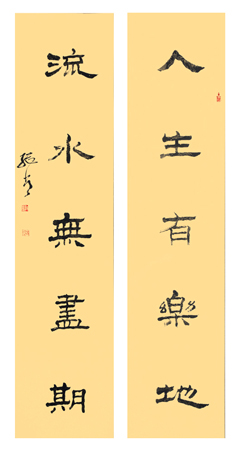 人生有樂地
流水無盡期